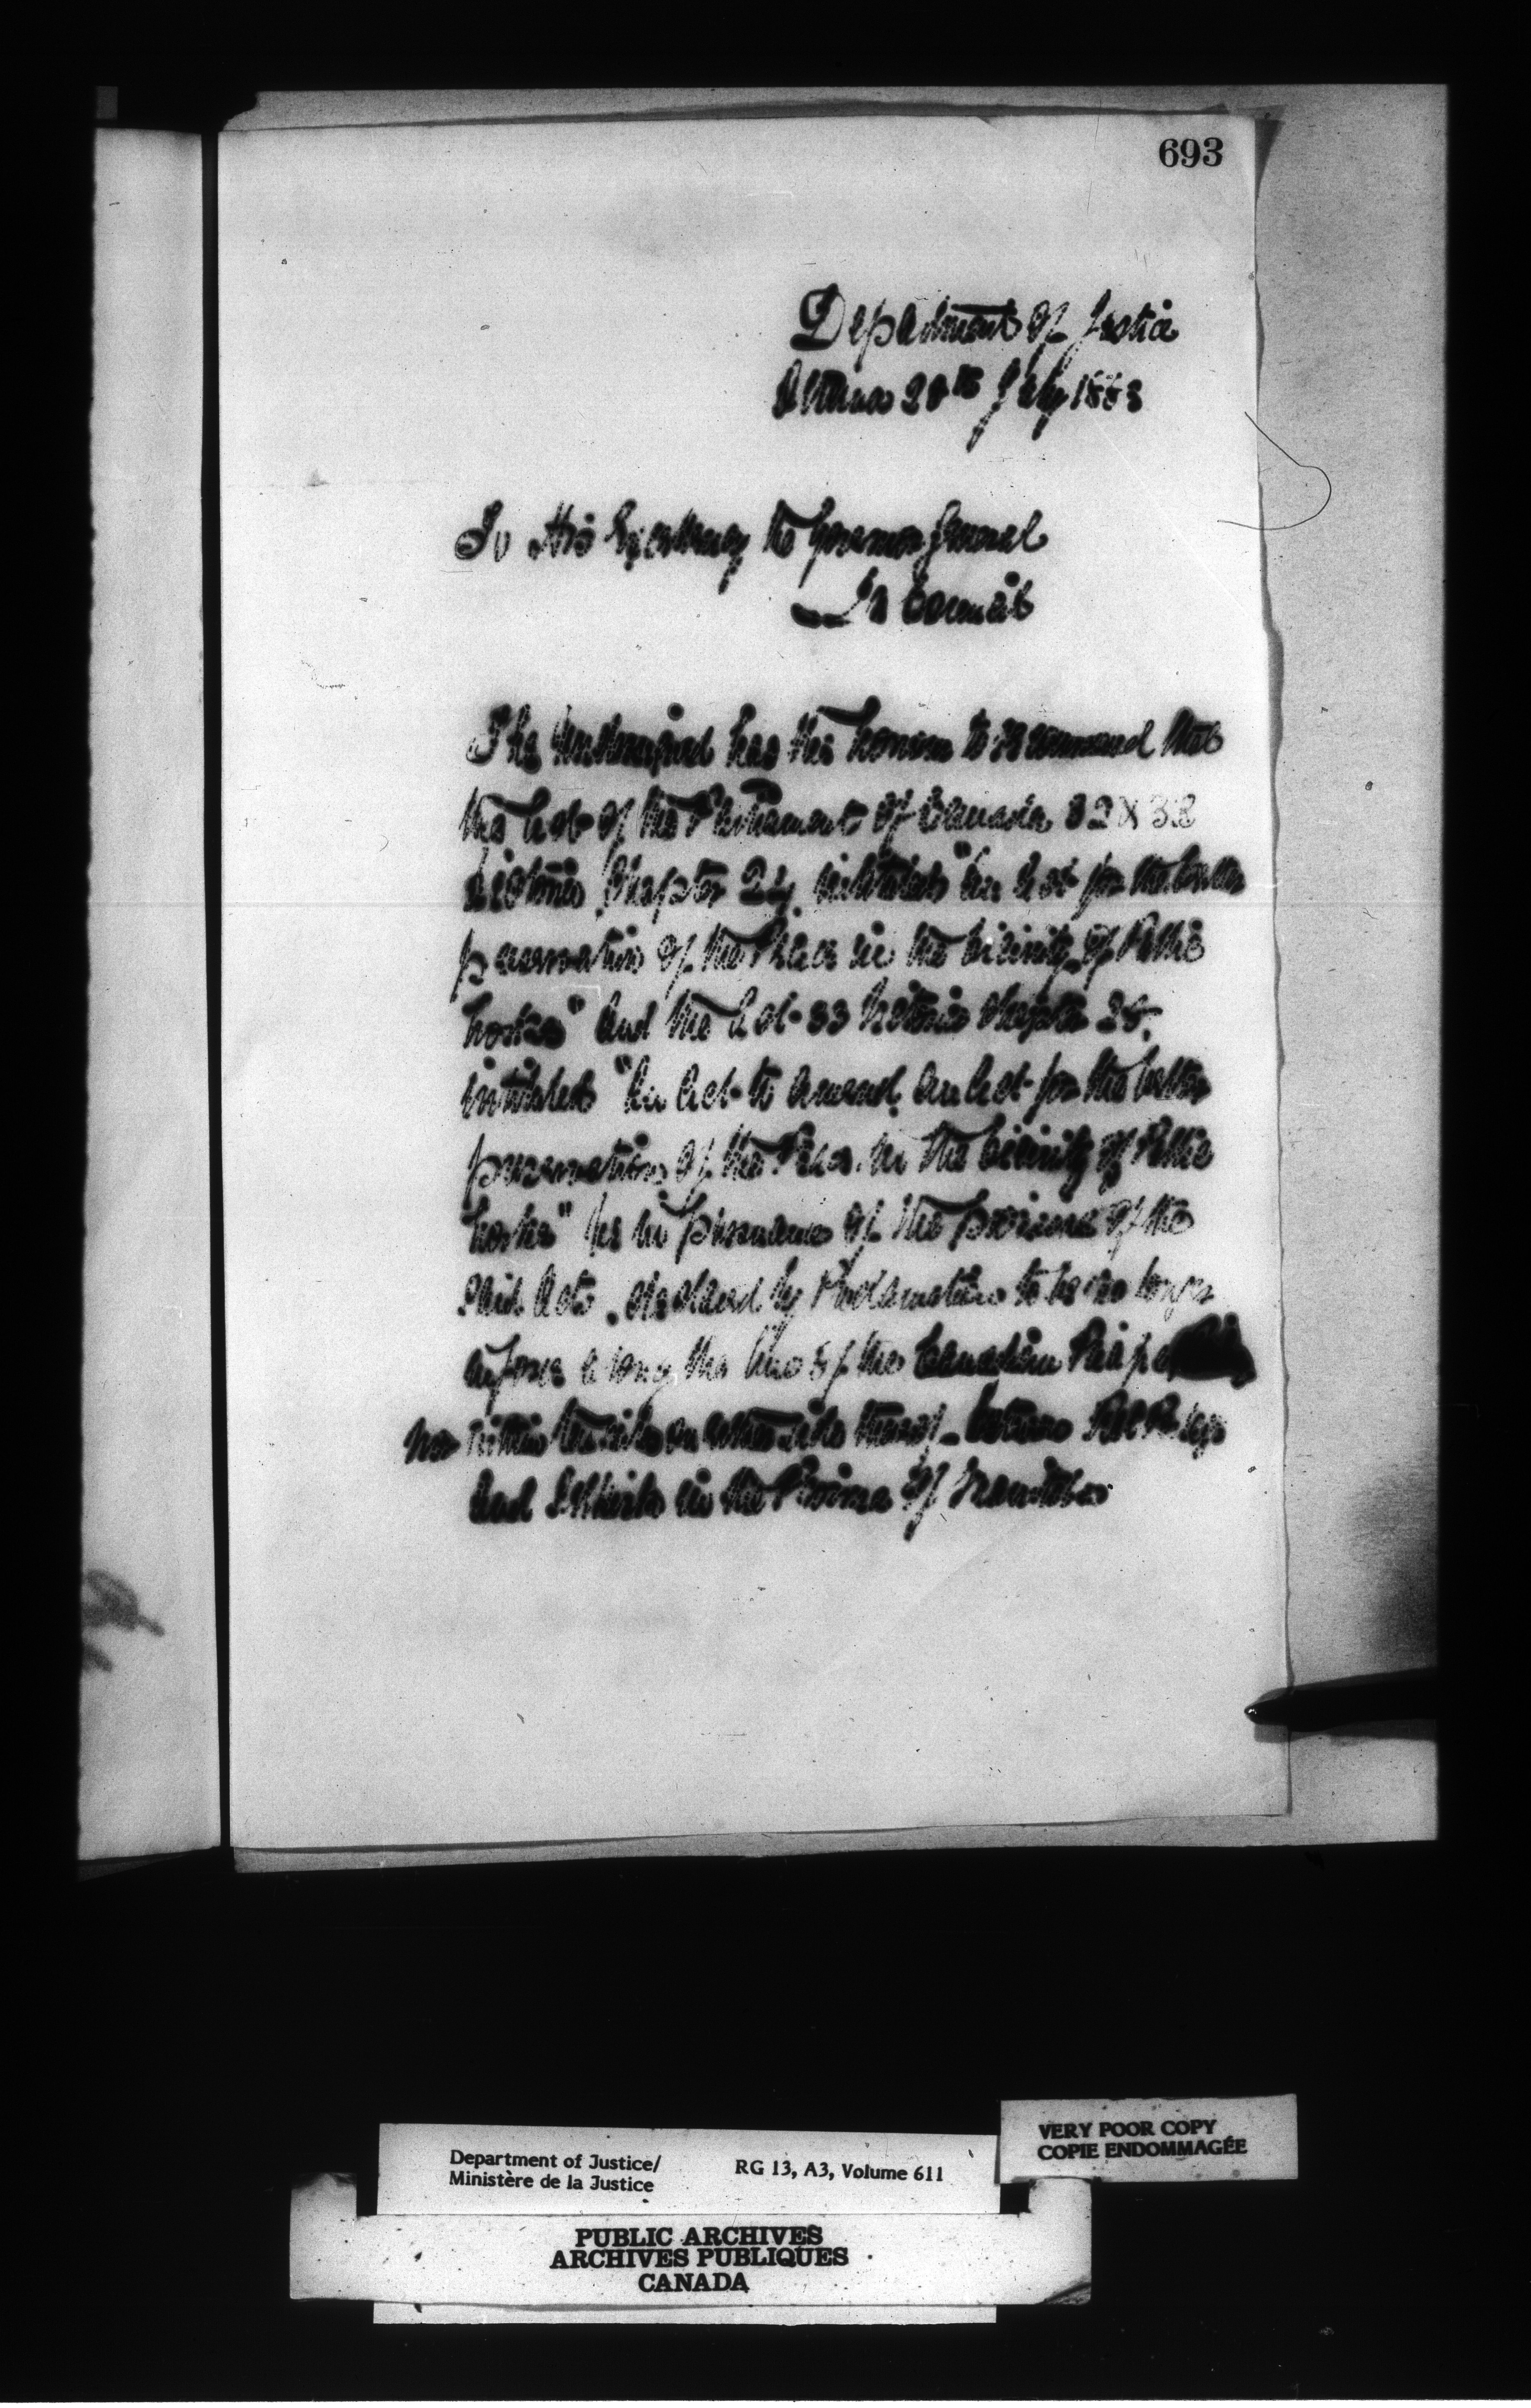 693
Department of Justice
Ottawa 28th July 1883
To His Excellency the Governor General
In Council
The undersigned has the honour to recommend that
the Act of the Parliament of Canada 32 & 33
Victoria Chapter 24, intituled "An Act for the better
preservation of the Peace in the vicinity of Public
Works" and the Act 33 Victoria Chapter 28,
intituled "An Act to amend, An Act for the better
preservation of the Peace in the vicinity of Public
Works" be in pursuance of the provisions of the
said Acts, declared by Proclamation to be no longer
in force along the line of the Canadian
within ten miles on either side thereof between Rat Portage
and Selkirk in the Province of Manitoba
Department of Justice/
Ministère de la Justice
RG 13, A3, Volume 611
VERY POOR COPY
COPIE ENDOMMAGÉE
PUBLIC ARCHIVES
ARCHIVES PUBLIQUES
CANADA